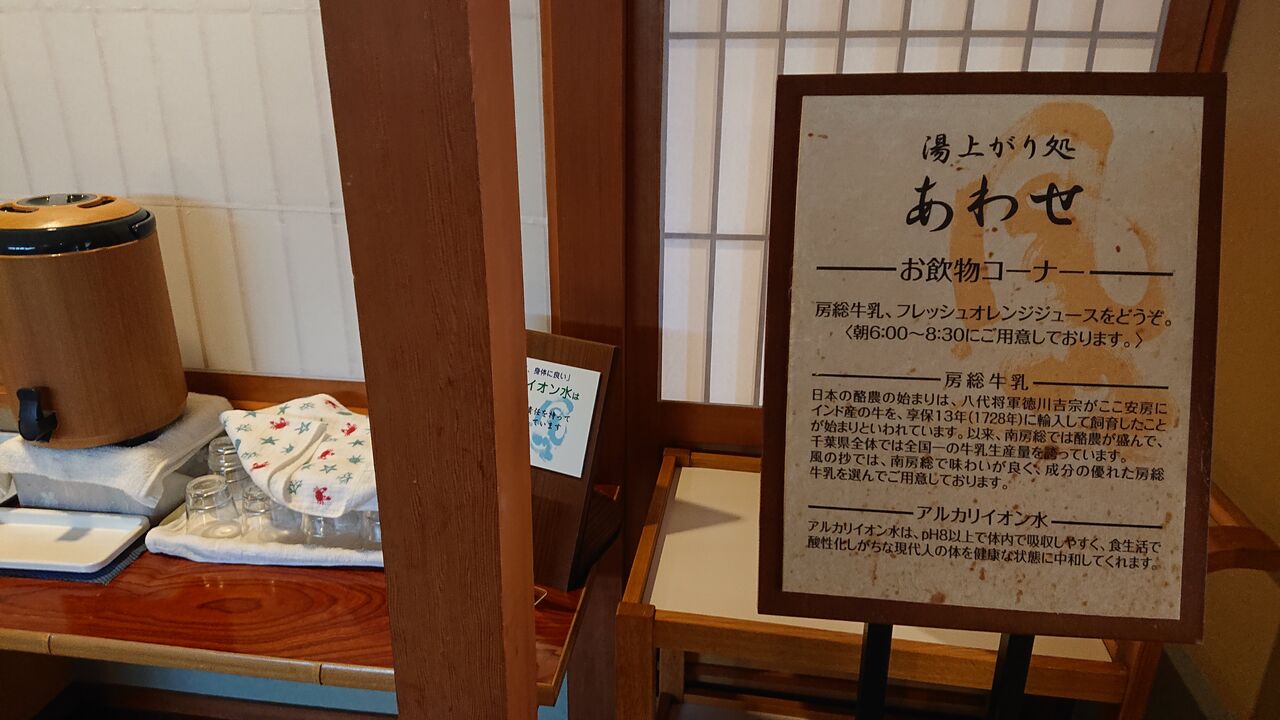 湯上がり処
あわせ
お飲物コーナー
房総牛乳、フレッシュオレンジジュースをどうぞ。
〈朝6:00〜8:30にご用意しております。〉
房総牛乳
日本の酪農の始まりは、八代将軍徳川吉宗がここ安房に
インド産の牛を、享保13年(1728年)に輸入して飼育したこと
が始まりといわれています。以来、南房総では酪農が盛んで、
千葉県全体では全国一の牛乳生産量を誇っています。
風の抄では、南房総で味わいが良く、成分の優れた房総
牛乳を選んでご用意しております。
アルカリイオン水
アルカリイオン水は、pH8以上で体内で吸収しやすく、食生活で
酸性化しがちな現代人の体を健康な状態に中和してくれます。
、身体に良い」
イオン水は
責任を持って
ています